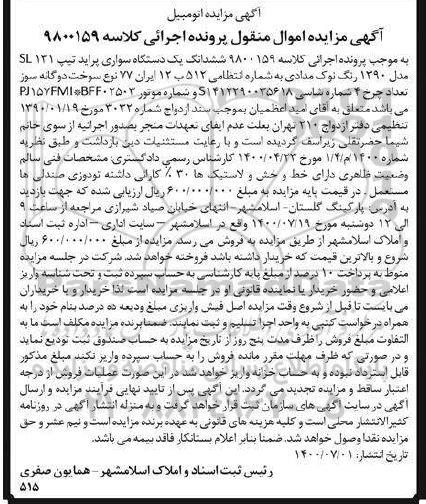 آگهی مزایده اتومبیل
آگهی مزایده اموال منقول پرونده اجرائی کلاسه ۹۸۰۰۱۵۹
به موجب پرونده اجرائی کلاسه ۹۸۰۰۱۵۹ ششدانگ یک دستگاه سواری پراید تیپ SL ۱۳۱
مدل ۱۳۹۰ رنگ نوک مدادی به شماره انتظامی ۵۱۲ ب ۱۲ ایران ۷۷ نوع سوخت دوگانه سوز
تعداد چرخ ۴ شماره شاسی S۱۴۱۲۲۹۰۰۲۵۶۱۸ و شماره موتور PJ۱۵۷FMI*BFF۰۲۵۰۲
می باشد متعلق به آقای امید اعظمیان بموجب سند ازدواج شماره ۳۰۳۳ مورخ ۱۳۹۰/۰۱/۱۹
تنظیمی دفتر ازدواج ۴۱۲ تهران بعلت عدم ایفای تعهدات منجر بصدور اجرائیه از سوی خانم
شیما حضرتقلی زیرآسف گردیده است و با رعایت مستثنیات دین بازداشت و طبق نظریه
شماره ۱۴۰۰/م/۱/۴ مورخ ۱۴۰۰/۰۴/۲۳ کارشناس رسمی دادگستری: مشخصات فنی سالم
وضعیت ظاهری دارای خط و خش و لاستیک ها ۳۰ ٪ کارائی داشته تودوزی صندلی ها
مستعمل، در قیمت پایه مزایده به مبلغ ۶۰۰/۰۰۰/۰۰۰ ریال ارزیابی شده که جهت بازدید
به آدرس: پارکینگ گلستان- اسلامشهر- انتهای خیابان صیاد شیرازی مراجعه از ساعت ۹
الی ۱۲ دوشنبه مورخ ۱۴۰۰/۰۷/۱۹ واقع در اسلامشهر – سایت اداری – اداره ثبت اسناد
و املاک اسلامشهر از طریق مزایده به فروش می رسد. مزایده از مبلغ ۶۰۰/۰۰۰/۰۰۰ ریال
شروع و بالاترین قیمت که خریدار داشته باشد فروخته خواهد شد. شرکت در جلسه مزایده
منوط به پرداخت ۱۰ درصد از مبلغ پایه کارشناسی به حساب سپرده ثبت و تحت شناسه واریز
اعلامی و حضور خریدار یا نماینده قانونی او در جلسه مزایده است لذا خریدار و یا خریداران
می بایست تا قبل از شروع وقت مزایده اصل فیش واریزی مبلغ ودیعه ده درصد بنام خود را به
همراه درخواست کتبی به واحد اجرا تسلیم و ثبت نمایند. ضمنا برنده مزایده مکلف است ما به
التفاوت مبلغ فروش را ظرف مدت پنج روز از تاریخ مزایده به حساب صندوق ثبت تودیع نماید
و در صورتی که ظرف مهلت مقرر مانده فروش را به حساب سپرده واریز نکند مبلغ مذکور
قابل استرداد نبوده و به حساب خزانه واریز خواهد شد در این صورت عملیات فروش از درجه
اعتبار ساقط و مزایده تجدید می گردد. این آگهی پس از تایید نهایی فرآیند مزایده و ارسال
آگهی در سایت آگهی های سازمان ثبت قرار خواهد گرفت و به منزله انتشار آگهی در روزنامه
کثیر الانتشار محلی است و کلیه هزینه های قانونی به عهده برنده مزایده است و نیم عشر و حق
مزایده نقدا وصول خواهد شد. ضمنا بنابر اعلام بستانکار فاقد بیمه می باشد.
تاریخ انتشار: ۱۴۰۰/۰۷/۰۱
رئیس ثبت اسناد و املاک اسلامشهر – همایون صفری
۵۱۵